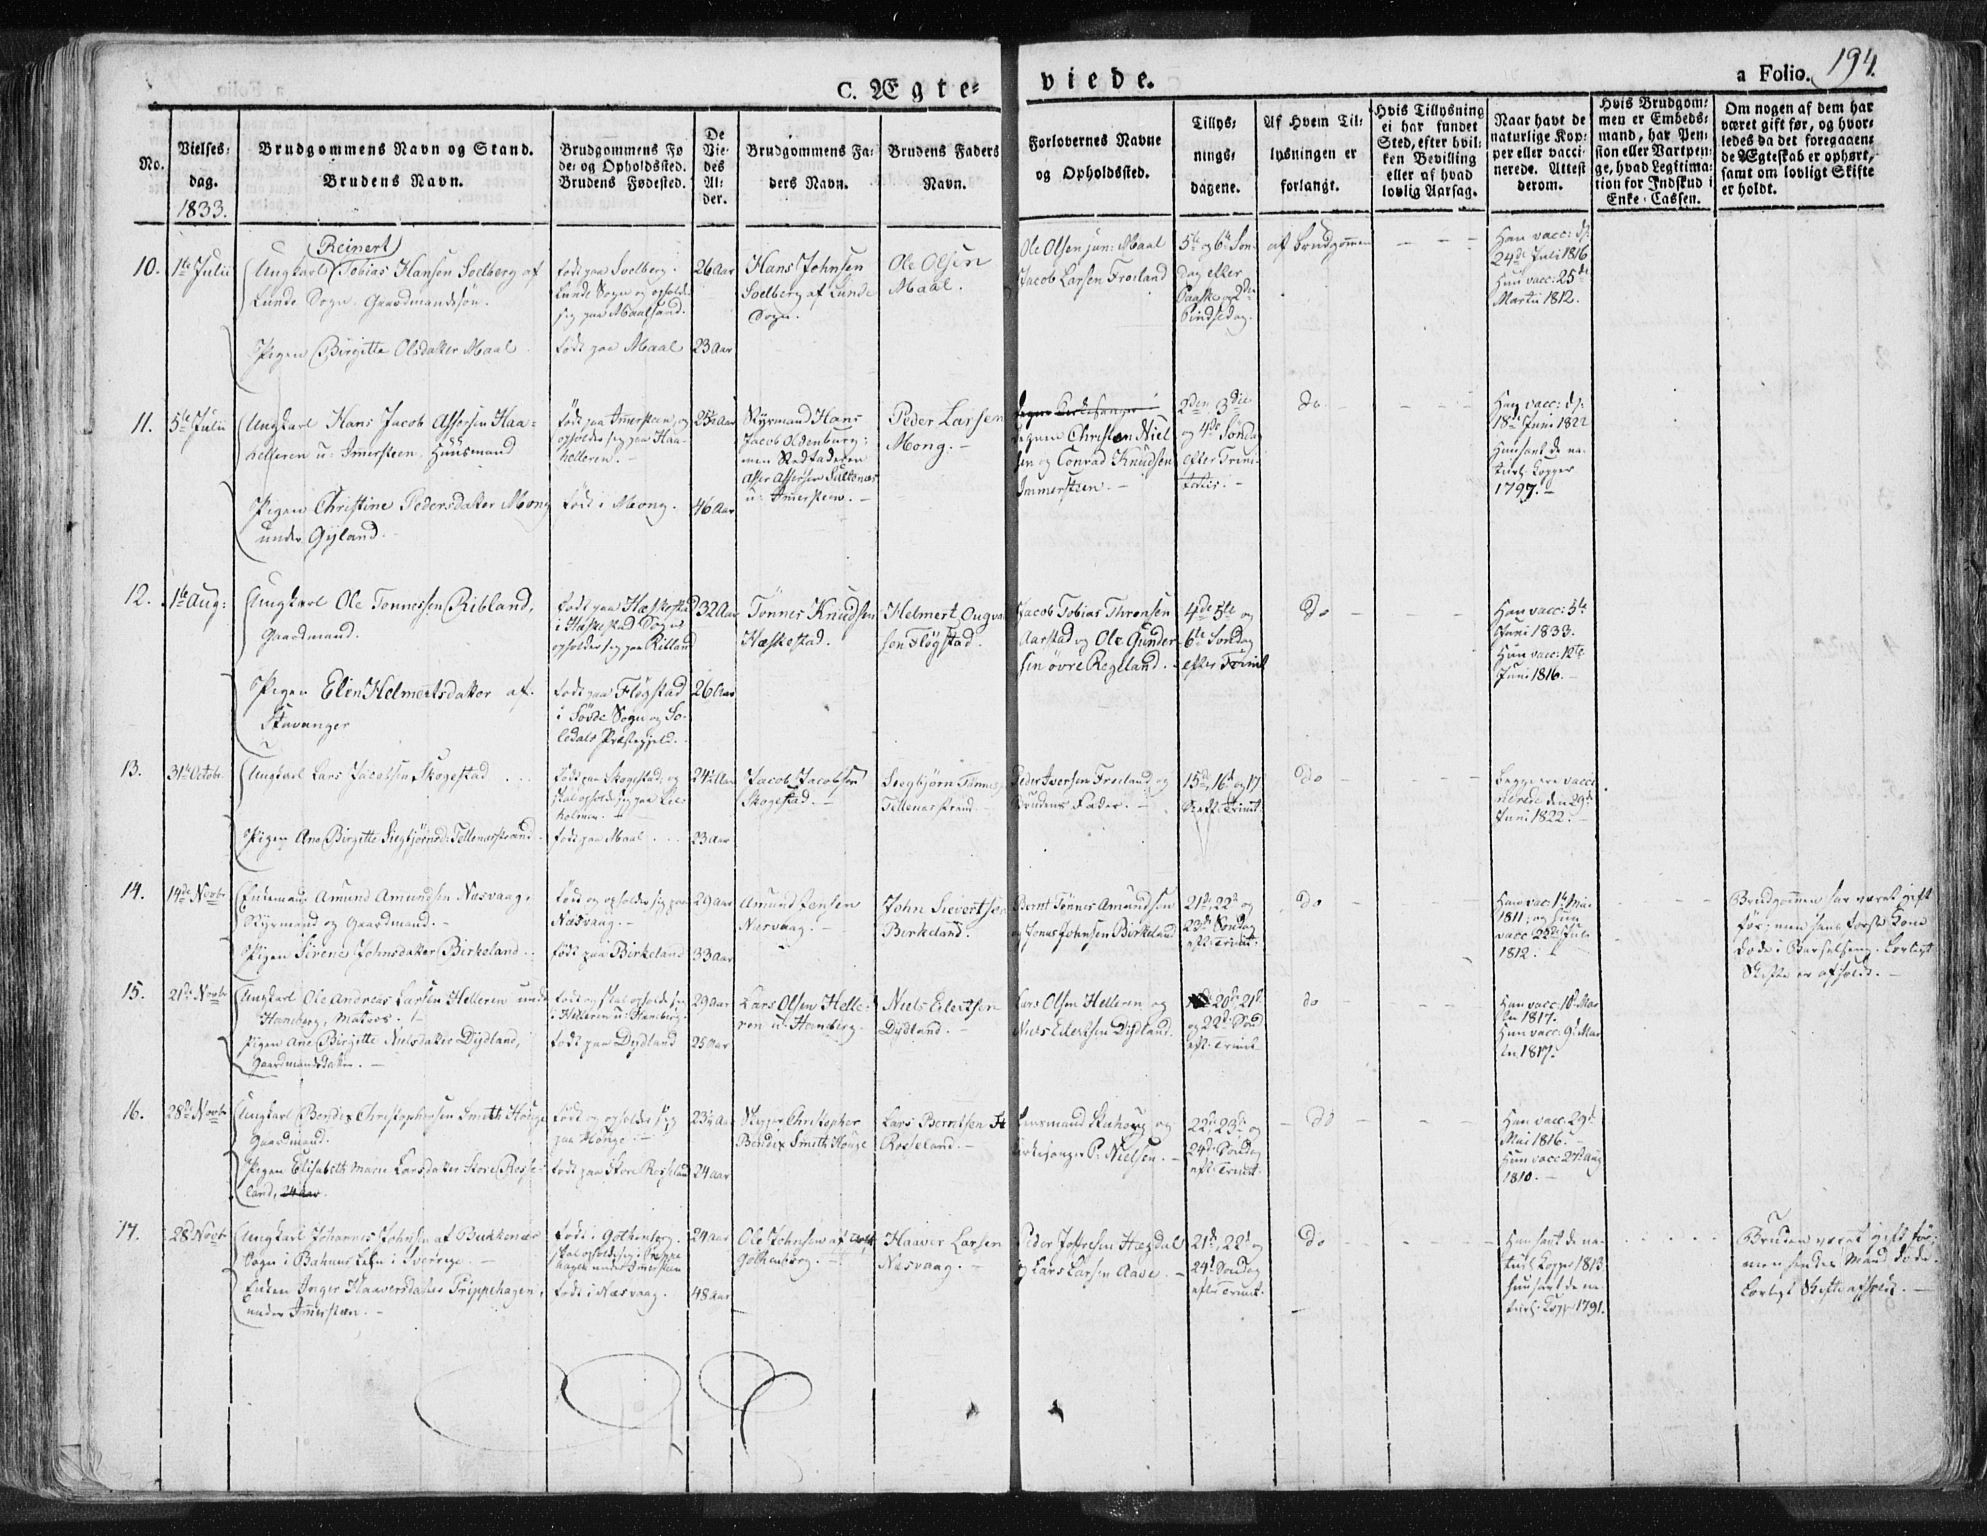 C. Ægte-
viede.
a Folio. 194.
No.
Vielses-
dag.
1833.
Brudgommens Navn og Stand.
Brudens Navn.
Brudgommens Fø
de- og Opholdssted.
Brudens Fødested.
De
Vie-
des
Al-
der.
Brudgommens Fa-
ders Navn.
Brudens Faders
Navn.
Forlovernes Navne
og Opholdssted.
Tillys-
nings-
dagene.
Af Hvem Til-
lysningen er
forlangt.
Hvis Tillysning
ei har fundet
Sted, efter hvil-
ken Bevilling
eller af hvad
lovlig Aarsag.
Naar havt de
naturlige Kop-
per eller vacci-
nerede. Attest
derom.
Hvis Brudgom-
men er Embeds-
mand, har Pen-
sion eller Vartpen-
ge, hvad Legitima-
tion for Indskud i
Enke-Cassen.
Om nogen af dem har
været gift før, og hvor-
ledes da det foregaaen-
de Ægteskab er ophørt,
samt om lovligt Skifte
er holdt.
10.
1te Julii
Reinert
Ungkarl Tobias Hansen Soelberg af
Lunde Sogn. Gaardmandssøn.
Pigen Birgitte Olsdatter Maal
født paa Soelberg.
Lunde Sogn og opholde
sig paa Maalsand.
født paa Maal
26 Aar
23 Aar
Hans Johnsen
Soelberg af Lunde
Sogn.
Ole Olsen
Maal.
Ole Olsen jun: Maal
Jacob Larsen Froeland
5te og 6te Søn-
dag efter
Paaske og 2den
Pindsedag.
af Brudgommen
Han vacc: d:
24de Juli 1816
Hun vacc: 25de
Martii 1812.
11.
5te Julii
Ungkarl Hans Jacob Assersen Haa-
helleren u: Imersteen. Huusmand
Pigen Christine Pedersdatter Mong
under Gyland.
født paa Imersteen, og
opholder sig paa Haa-
helleren.
født i Mong.
25½ Aar
46 Aar
Styrmand Hans
Jacob Oldenburg;
men Stedfaderen
Asser Assersen Saltonæs
u: Imersteen.
Peder Larsen
Mong.
Christen Niel
sen og Conrad Knudsen
Immersteen.
2den 3die
og 4de Søndag
efter Trini-
tatis.
do
Han vacc: d:
18de Juni 1822
Hun havt de na-
turl: Kopper
1797.
12.
1te Aug:
Ungkarl Ole Tønnessen Ribland,
Gaardmand.
Pigen Elen Helmertsdatter af
Stavanger
født paa Hæskestad
i Hæskestad Sogn
opholder sig paa Ribland
født paa Fløgstad
i Søvde Sogn og So-
ledals Præstegjeld.
32 Aar
26 Aar
Tönnes Knudsen
Hæskestad.
Helmert Augvald
sen Fløgstad.
Jacob Tobias Thronsen
Aarstad og Ole Gunder-
sen øvre Regeland.
4de 5te og
6te Søndag
efter Trinit
do
Han vacc: 5te
Juni 1833.
Hun vacc: 12te
Juni 1816.
13.
31te Octobr.
Ungkarl Lars Jacobsen Skogestad
Pigen Ane Birgitte Siegbjørnsd: Tellenæsstrand
født paa Skogestad; og
skal opholde sig paa Lil-
holmen.
født paa Maal
24½ Aar
23 Aar
Jacob Jacobsen
Skogestad.
Siegbjørn Tønnes:
Tellenæsstrand.
Peder Iversen Froeland og
Brudens Fader.
15de, 16de og 17
S: eft: Trinit.
do
Beggere vacci-
nerede den 29de
Juni 1822.
14.
14de Novbr
Enkemand Amund Amundsen Næsvaag,
Styrmand og Gaardmand.
Pigen Sirene Johnsdatter Birkeland.
født og opholder sig paa
Næsvaag.
født paa Birkeland
29 Aar
33 Aar
Amund Jensen
Næsvaag.
John Sievertsen
Birkeland.
Bernt Tønnes Amundsen
og Jonas Johnsen Birkeland
21de, 22de og
23de Søndag
eft: Trinit.
do
Han vac: 1te Mai
1811; og hun
vacc 22de Juli
1812.
Brudgommen har været gift
før; men hans første Kone
døde i Barselseng. Lovligt
Skifte er afholdt.
15.
21de Novbr
Ungkarl Ole Andreas Larsen Helleren unde
Hambierg, Matros.
Pigen Ane Birgitte Nielsdatter Dydland,
Gaardmandsdatter.
født og skal opholde sig
i Helleren u: Hambierg.
født paa Dydland
29 Aar
25 Aar
Lars Olsen Helle-
ren u: Hamberg.
Niels Edertsen
Dydland.
Lars Olsen Helleren og
Niels Edertsen Dydland.
20de, 21de
og 22de Sønd
eft: Trinit
do
Han vacc: 10de Mar
tii 1817.
Hun vacc: 9de Mar
tii 1817.
16.
28de Novbr
Ungkarl Bendix Christophersen Smith Houge
Gaardmand.
Pigen Elisabeth Marie Larsdatter Store Rosse-
land, 24 Aar.
født og opholder sig
paa Houge.
født paa Store Rosseland
23½ Aar
24 Aar
Skipper Christopher
Bendix Smith Houge
Lars Berntsen St
Rosseland.
Lensmand Stenberg og
Kirkesanger P: Nielsen.
22de, 23de og
24de Søndag
eft: Trinit.
do
Han vacc: 29de
Mai 1816.
Hun vacc 27de Aug
1810.
17.
28de Novbr
Ungkarl Johannes Johnsen af Buskenæs
Sogn i Bahuus Lehn i Sverrige.
Enken Inger Haaversdatter Trippehagen,
under Imersteen.
født i Gothenborg.
skal opholde sig i Trippe
hagen under Imersteen
født i Næsvaag.
24 Aar
48 Aar
Ole Johnsen af
Gothenborg.
Haaver Larsen
Næsvaag.
Peder Jostesen Hægdal
og Lars Larsen Aase.
21de, 22de og
24de Søndag
efter Trinit.
do
Han havt de na-
turl: Kopper 1813
Hun havt de na
turl: Kopp: 1791.
Bruden været gift før;
men hendes Mand døde.
Lovligt Skifte afholdt.